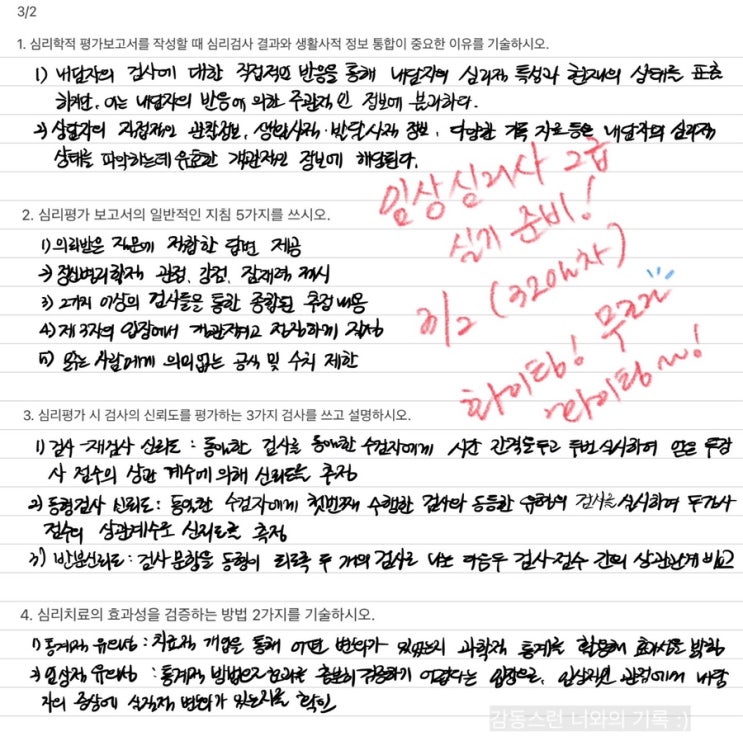 3/2
1. 심리학적 평가보고서를 작성할 때 심리검사 결과와 생활사적 정보 통합이 중요한 이유를 기술하시오.
1) 내담자의 검사에 대한 직접적인 반응을 통해 내담자의 심리적 특성과 현재의 상태를 표출
하지만, 이는 내담자의 반응에 의한 주관적인 정보에 불과하다.
2) 상담자의 직접적인 관찰정보, 생활사적·발달사적 정보, 다양한 기록 자료 등은 내담자의 심리적
상태를 파악하는데 유효한 객관적인 정보에 해당된다.
임상심리사 2급
실기 준비!
3/2 (320일차)
화이팅! 무조건
파이팅~!
2. 심리평가 보고서의 일반적인 지침 5가지를 쓰시오.
1) 의뢰받은 질문에 적합한 답변 제공
2) 정신병리학적 관점, 강점, 잠재력 제시
3) 2가지 이상의 검사들을 통한 종합된 추정 내용
4) 제 3자의 입장에서 객관적이고 진정하게 작성
5) 읽는 사람에게 의미없는 공식 및 수치 제한
3. 심리평가 시 검사의 신뢰도를 평가하는 3가지 검사를 쓰고 설명하시오.
1) 검사-재검사 신뢰도 : 동일한 검사를 동일한 수검자에게 시간 간격을 두고 두번 실시하여 얻은 두 검
사 점수의 상관 계수에 의해 신뢰도를 추정
2) 동형검사 신뢰도 : 동일한 수검자에게 첫번째 수행한 검사와 동등한 유형의 검사를 실시하여 두 검사
점수의 상관계수로 신뢰도를 측정
3) 반분신뢰도 : 검사 문항을 동형이 되도록 두 개의 검사로 나눈 다음 두 검사 점수 간의 상관관계 비교
4. 심리치료의 효과성을 검증하는 방법 2가지를 기술하시오.
1) 통계적 유의성 : 치료적 개입을 통해 어떤 변화가 있었는지 과학적 통계를 활용해 효과성을 밝힘
2) 임상적 유의성 : 통계적 방법으로 효과를 충분히 검증하기 어렵다는 입장으로, 임상적인 관점에서 내담
자의 증상에 실질적 변화가 있는지를 확인
감동스런 너와의 기록 :)